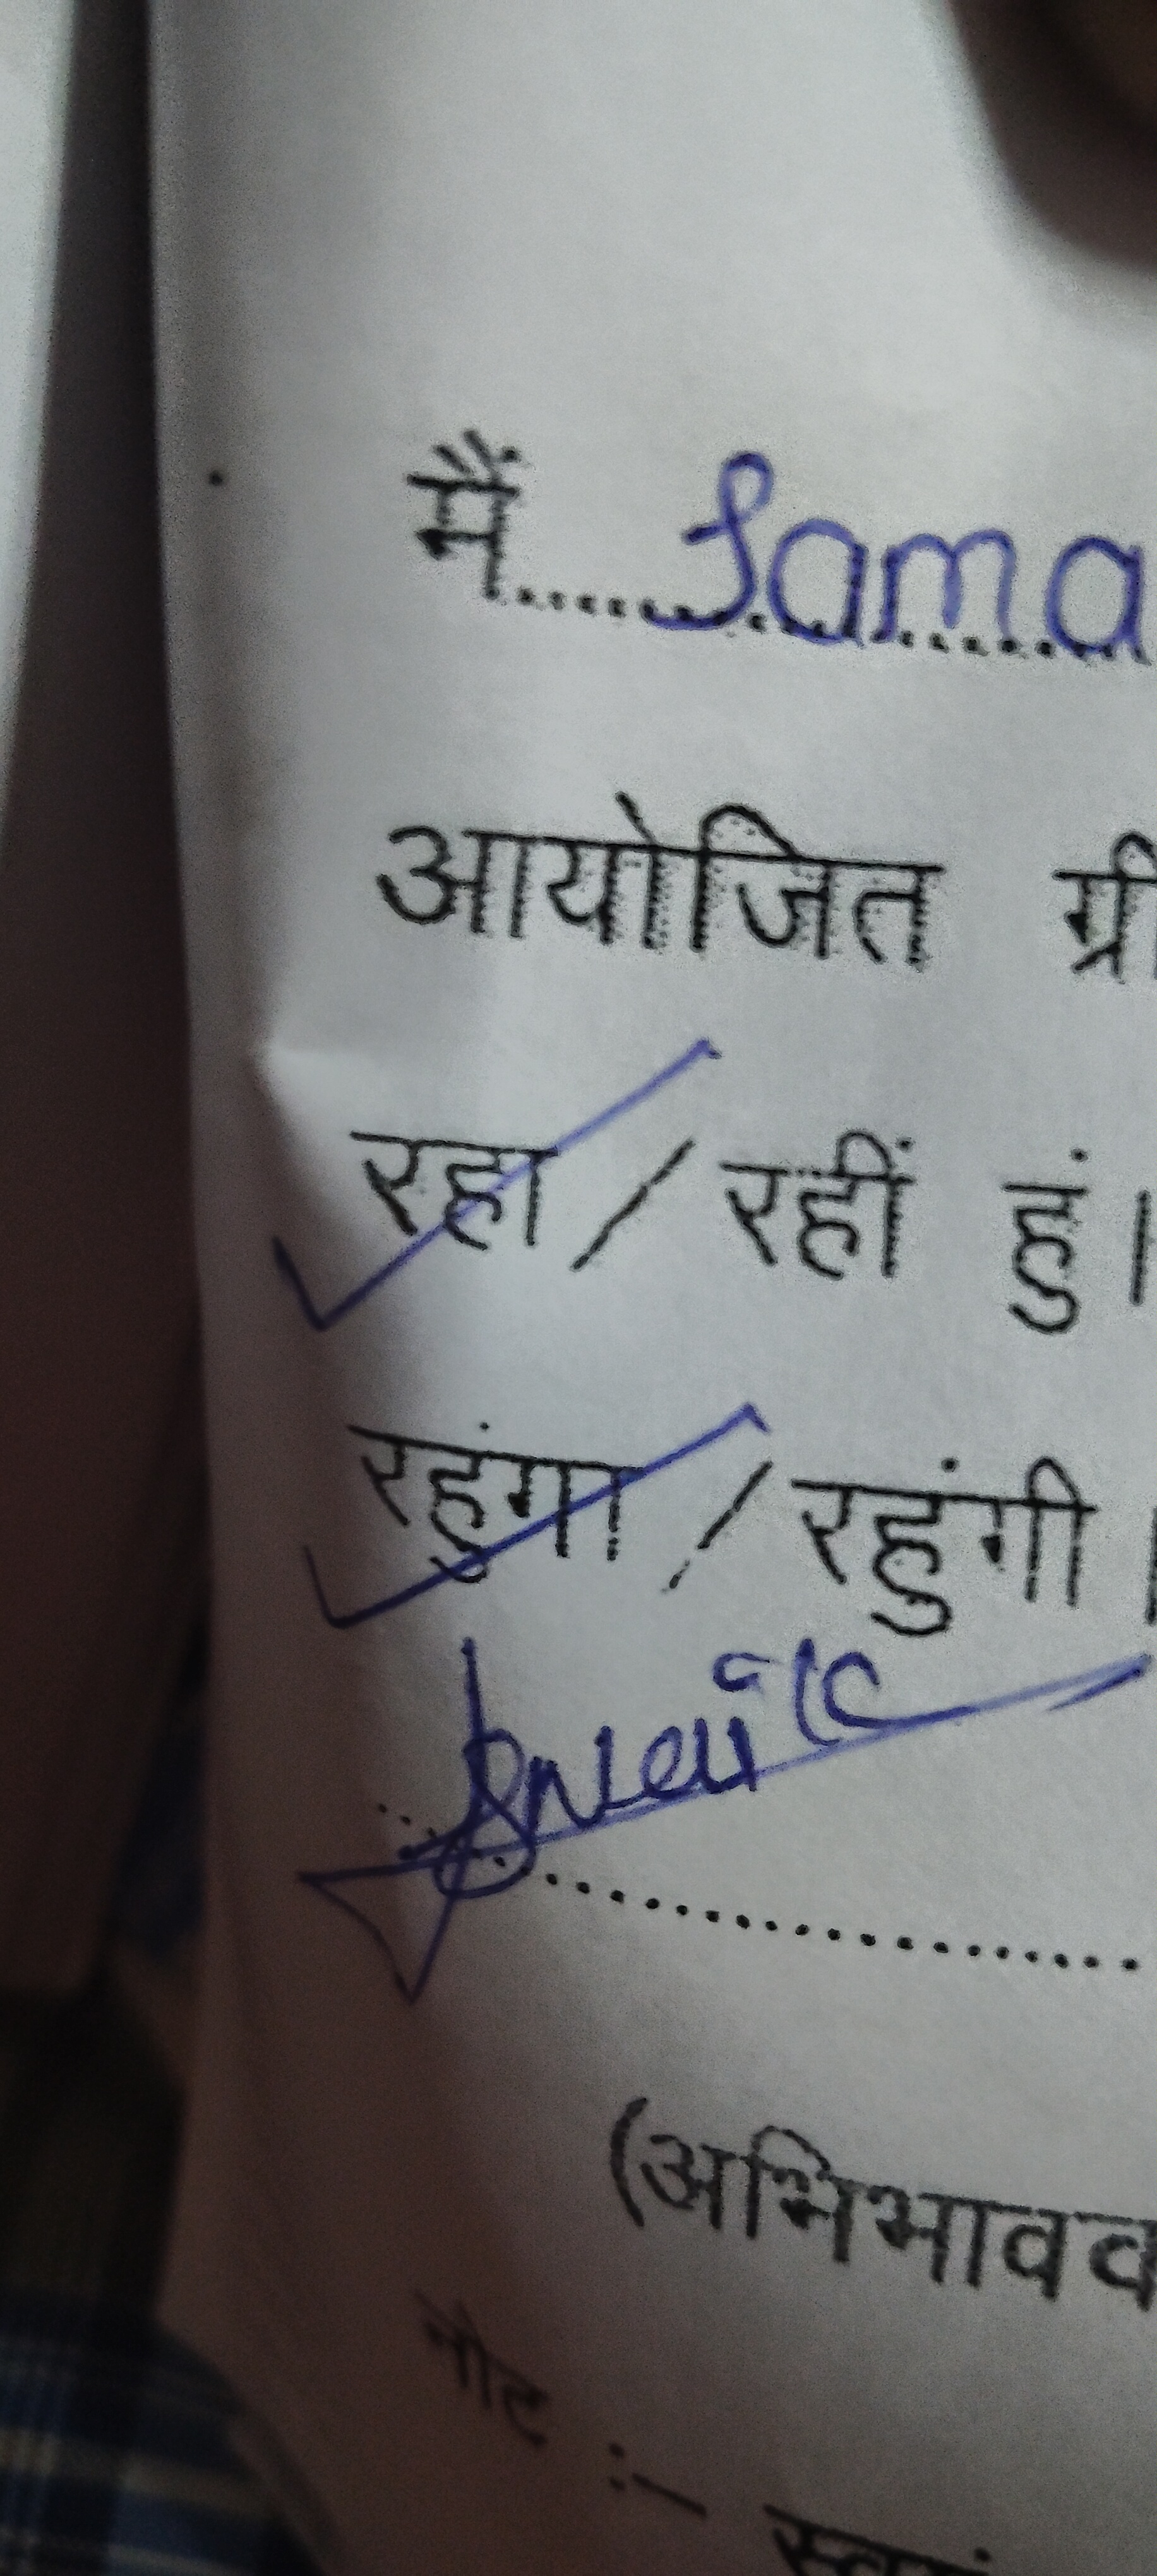 मैं.......... Sama
आयोजित ग्री
रहा / रहीं हुं।
रहुंगा / रहुंगी।
(अभिभावक
नोट :- स्वयं